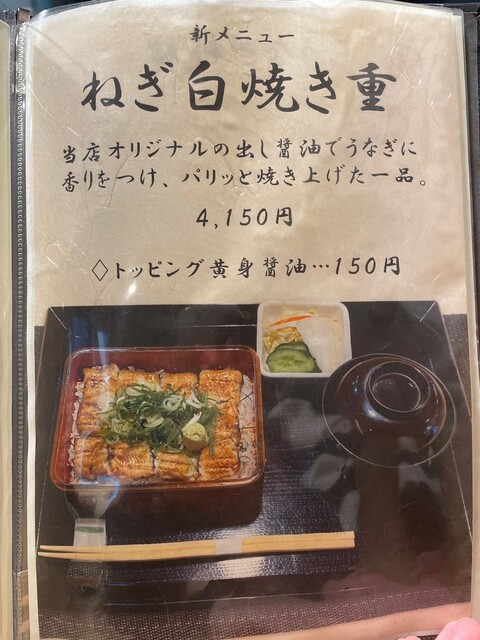 新メニュー
ねぎ白焼き重
当店オリジナルの出し醤油でうなぎに
香りをつけ、パリッと焼き上げた一品。
4,150円
◇トッピング黄身醤油…150円